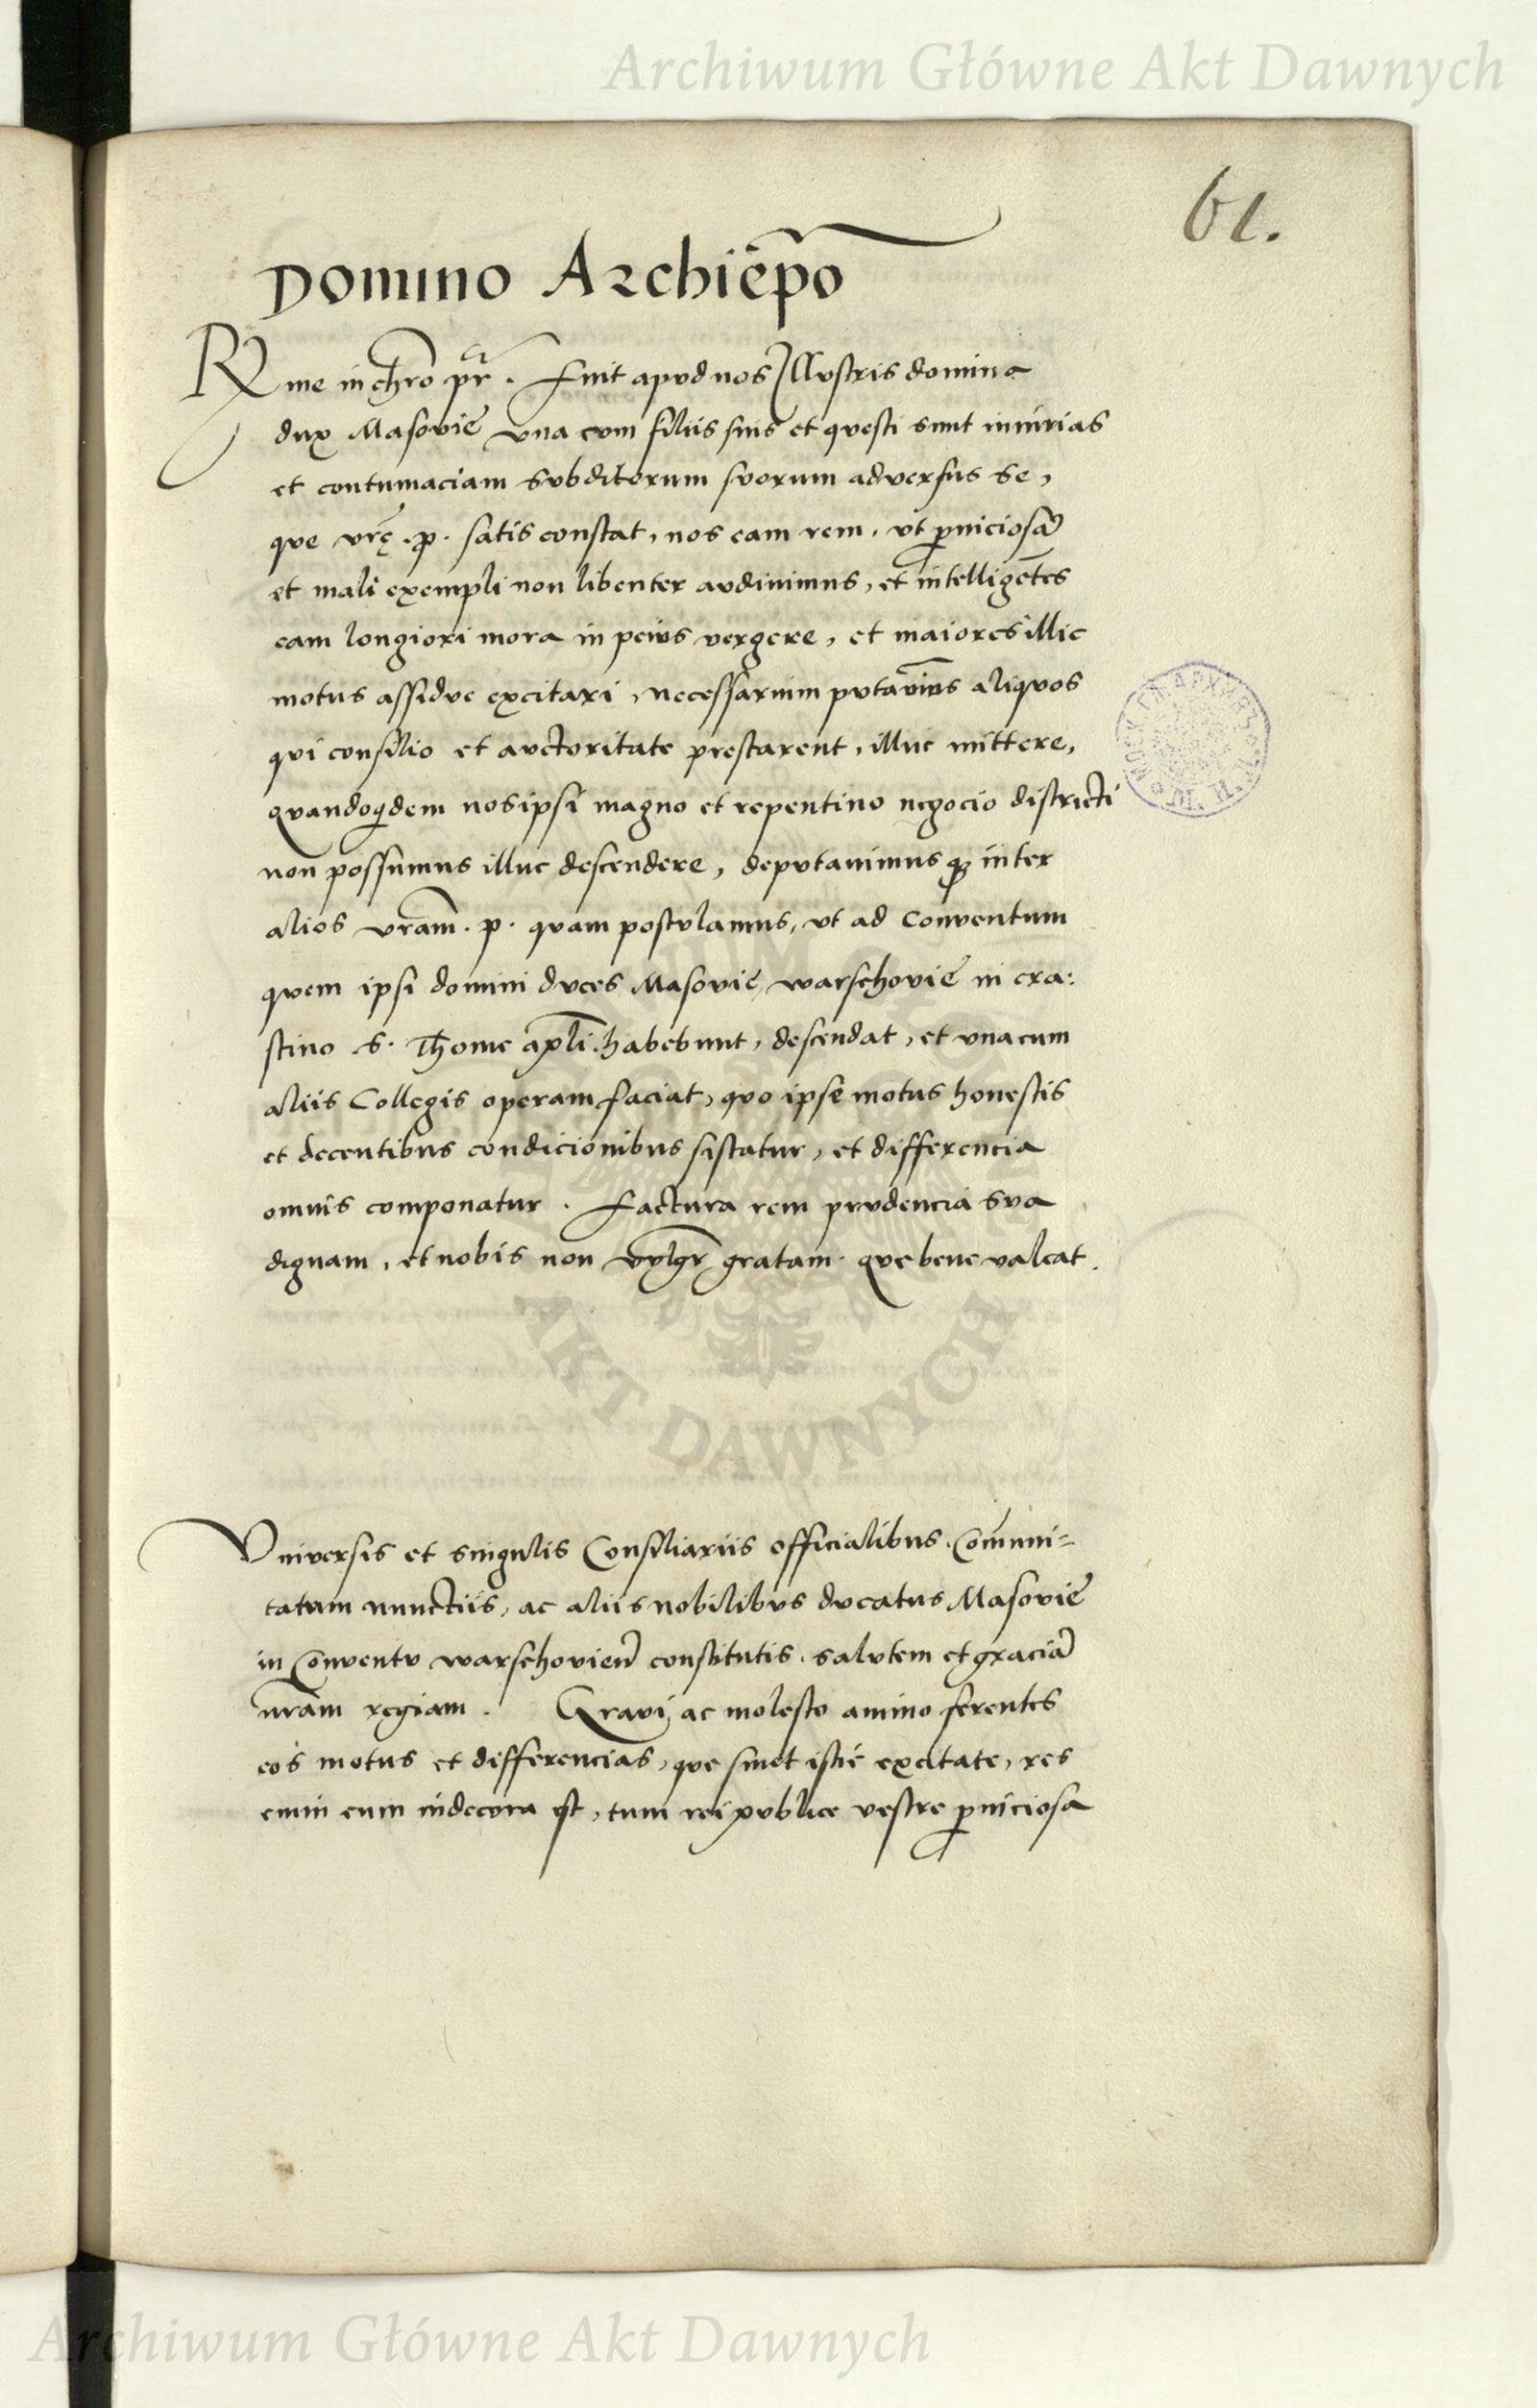 Archiwum Główne Akt Dawnych
61.
Domino Archiēpo
Rme in chro pr̄. Fuit apud nos Illustris domina
dux Masovie una cum filiis suis et questi sunt iniurias
et contumaciam subditorum suorum adversus se,
que vrę. p. satis constat, nos eam rem, ut pniciosā
et mali exempli non libenter audivimus, et intelligētes
eam longiori mora in peius vergere, et maiores illic
motus assidue excitari, necessarium putavim̄s aliquos
qui consilio et auctoritate prestarent, illuc mittere,
quandoqdem nos ipsi magno et repentino negocio districti
non possumus illuc descendere, deputavimusq; inter
alios vram̄. p. quam postulamus, ut ad Conventum
quem ipsi domini duces Masovie, warschovie in cra:
stino S. Thome apli. habebunt, descendat, et una cum
aliis Collegis operam faciat, quo ipse motus honestis
et decentibus condicionibus sistatur, et differencia
omnis componatur. Factura rem prudencia sua
dignam, et nobis non vulgr̄ gratam. que bene valeat.
AKT DAWNYCH
Universis et singulis Consiliariis officialibus. Cōmuni=
tatum nunctiis, ac aliis nobilibus ducatus Masovie
in Conventu warschovien̄ constitutis. salutem et graciā
nram̄ regiam. Gravi ac molesto animo ferentes
eos motus et differencias, que sunt istic excitate, res
enim cum indecora est, tum rei publice vestre pniciosa
Archiwum Główne Akt Dawnych